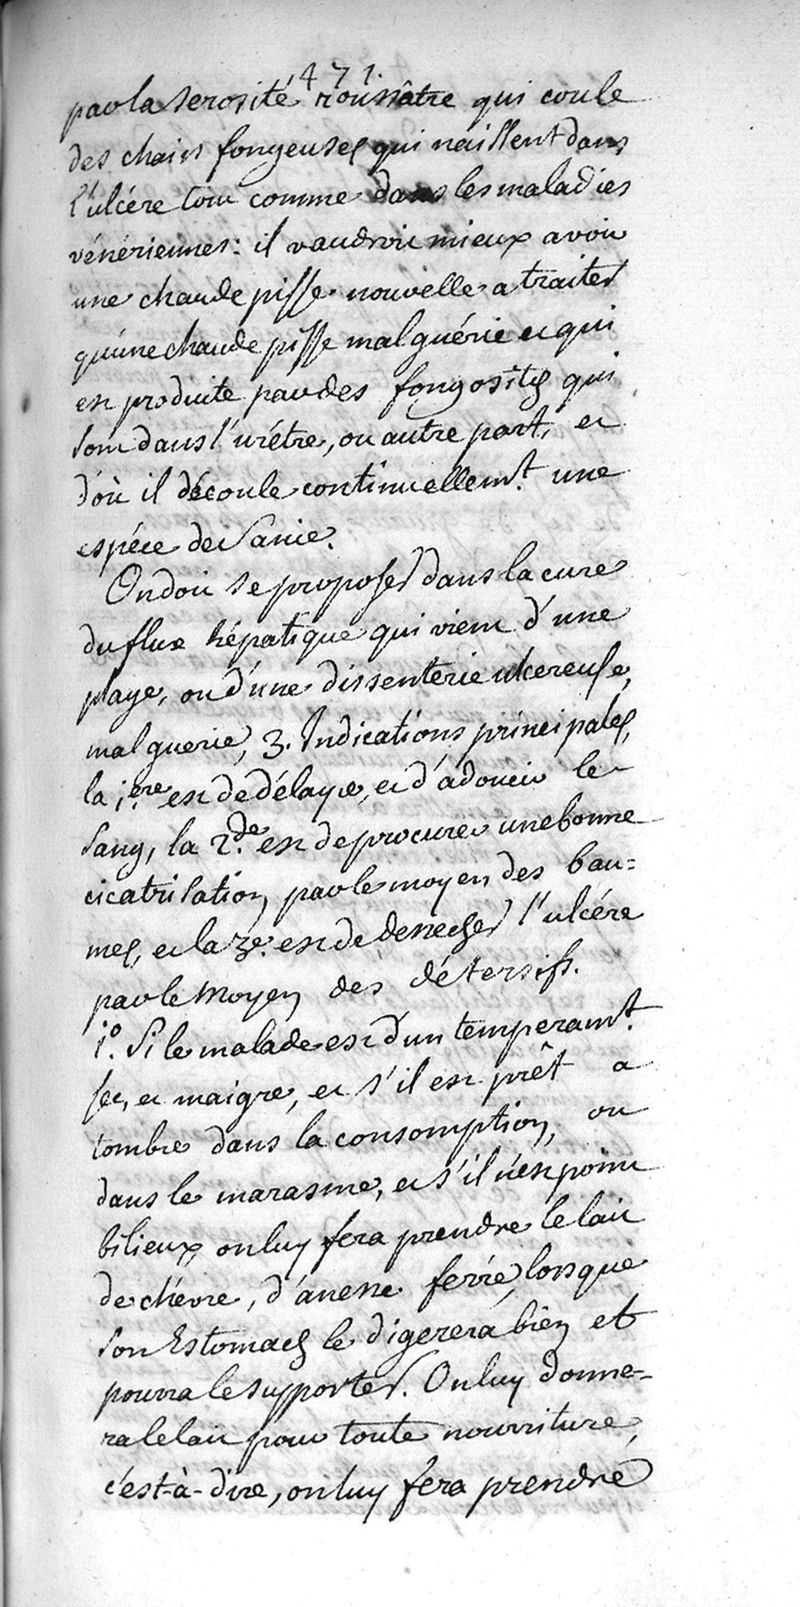 471.
par la serosité roussâtre qui coule
des chairs fongeuses qui naissent dans
l'ulcére tout comme dans les maladies
vénériennes: il vaudroit mieux avoir
une chaude pisse nouvelle a traiter
qu'une chaude pisse mal guérie et qui
est produite par des fongosités qui
sont dans l'urétre, ou autre part, et
d'où il découle continuellemt. une
espéce de Sanie.
On doit se proposer dans la cure
du flux hépatique qui vient d'une
playe, ou d'une dissenterie ulcereuse,
mal guerie, 3. Indications principales,
la 1ere. est de délayer, et d'adoucir le
sang, la 2.de est de procurer une bonne
cicatrisation par le moyen des bau=
mes, et la 3e. est de dessecher l'ulcére
par le moyen des détersifs.
1°. Si le malade est d'un temperamt.
sec, et maigre, et s'il est prêt a
tomber dans la consomption, ou
dans le marasme, et s'il n'est point
bilieux on luy fera prendre le lait
de chévre, d'anesse ferré, lorsque
son Estomach le digerera bien et
pourra le supporter. On luy donne-
ra le lait pour toute nourriture,
c'est-à-dire, on luy fera prendre